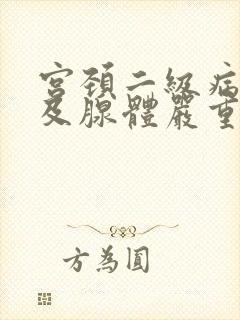 宮頚二級病
及腺體嚴重
方為圓